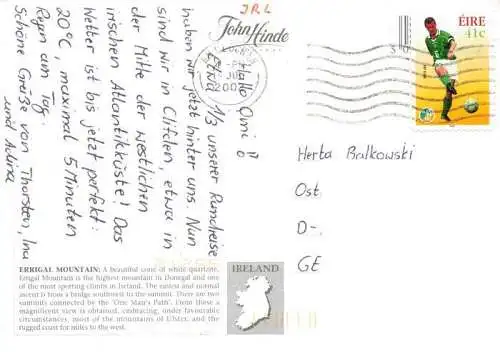 Hallo Omi ö!!
Etwa 1/3 unserer Rundreise
haben wir jetzt hinter uns. Nun
sind wir in Clifden, etwa in
der Mitte der westlichen
irischen Atlantikküste! Das
Wetter ist bis jetzt perfekt:
20°C, maximal 5 Minuten
Regen am Tag.
Schöne Grüße von Thorsten, Ina
und Adina
IRL
John Hinde
ÉIRE
41c
Herta Balkowski
Ost.
D-.
GE
ERRIGAL MOUNTAIN: A beautiful cone of white quartzite,
Errigal Mountain is the highest mountain in Donegal and one
of the most sporting climbs in Ireland. The easiest and normal
ascent is from a bridge southwest to the summit. There are two
summits connected by the "One Man's Path". From these a
magnificent view is obtained, embracing, under favourable
circumstances, most of the mountains of Ulster, and the
rugged coast for miles to the west.
IRELAND